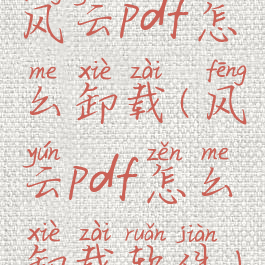 风云pdf怎
me xiè zài fēng
么卸载(风
yún zěn me
云pdf怎么
xiè zài ruǎn jiàn
卸载软件)